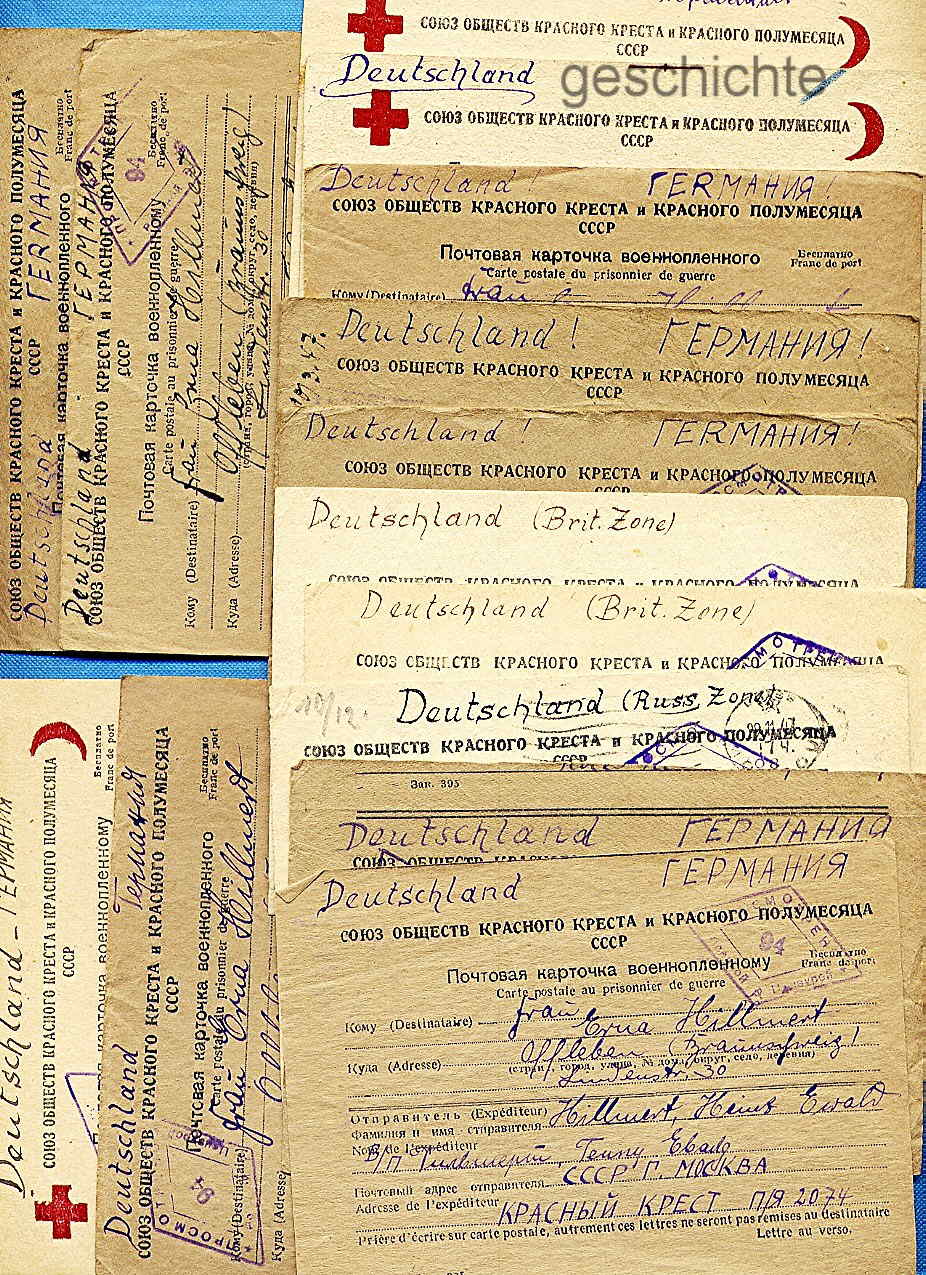 СОЮЗ ОБЩЕСТВ КРАСНОГО КРЕСТА и КРАСНОГО ПОЛУМЕСЯЦА
СССР
Deutschland
geschichte
СОЮЗ ОБЩЕСТВ КРАСНОГО КРЕСТА и КРАСНОГО ПОЛУМЕСЯЦА
СССР
Deutschland! ГЕRМАНИЯ!
СОЮЗ ОБЩЕСТВ КРАСНОГО КРЕСТА и КРАСНОГО ПОЛУМЕСЯЦА
СССР
Почтовая карточка военнопленного
Бесплатно
Franc de port
Carte postale du prisonnier de guerre
Кому (Destinataire) Frau
Deutschland! ГЕРМАНИЯ!
СОЮЗ ОБЩЕСТВ КРАСНОГО КРЕСТА и КРАСНОГО ПОЛУМЕСЯЦА
СССР
Deutschland! ГЕRМАНИЯ!
СОЮЗ ОБЩЕСТВ КРАСНОГО КРЕСТА и КРАСНОГО ПОЛУМЕСЯЦА
Deutschland (Brit. Zone)
Deutschland (Brit. Zone)
СОЮЗ ОБЩЕСТВ КРАСНОГО КРЕСТА и КРАСНОГО ПОЛУМЕСЯЦА
10/12.
Deutschland (Russ. Zone)
СОЮЗ ОБЩЕСТВ КРАСНОГО КРЕСТА и КРАСНОГО ПОЛУМЕСЯЦА
СССР
Зак. 395
Deutschland ГЕРМАНИЯ
Deutschland ГЕРМАНИЯ
СОЮЗ ОБЩЕСТВ КРАСНОГО КРЕСТА и КРАСНОГО ПОЛУМЕСЯЦА
СССР
94
Почтовая карточка военнопленному
Бесплатно
Franc de port
Carte postale au prisonnier de guerre
Кому (Destinataire) Frau
Erna Hillmert
Куда (Adresse) Offleben (Braunschweig)
(страна, город, улица, № дома, округ, село, деревня)
Lindenstr. 30
Отправитель (Expéditeur) Hillmert, Heinz Ewald
Фамилия и имя отправителя
Nom de l'expéditeur
Почтовый адрес отправителя СССР Г. МОСКВА
Adresse de l'expéditeur
КРАСНЫЙ КРЕСТ П/Я 2074
Prière d'écrire sur carte postale, autrement ces lettres ne seront pas remises au destinataire
Lettre au verso.
СОЮЗ ОБЩЕСТВ КРАСНОГО КРЕСТА и КРАСНОГО ПОЛУМЕСЯЦА
СССР
Deutschland ГЕRМАНИЯ
Почтовая карточка военнопленного
Бесплатно
Franc de port
Deutschland ГЕРМАНИЯ
СОЮЗ ОБЩЕСТВ КРАСНОГО КРЕСТА и КРАСНОГО ПОЛУМЕСЯЦА
СССР
94
Почтовая карточка военнопленному
Бесплатно
Franc de port
Carte postale au prisonnier de guerre
Кому (Destinataire) Frau Erna Hillmert
Куда (Adresse) Offleben (Braunschweig)
(страна, город, улица, № дома, округ, село, деревня)
Lindenstr. 30
Deutschland - ГЕРМАНИЯ
СОЮЗ ОБЩЕСТВ КРАСНОГО КРЕСТА и КРАСНОГО ПОЛУМЕСЯЦА
СССР
Бесплатно
Franc de port
Почтовая карточка военнопленному
Deutschland Германия
СОЮЗ ОБЩЕСТВ КРАСНОГО КРЕСТА и КРАСНОГО ПОЛУМЕСЯЦА
СССР
Почтовая карточка военнопленного
Бесплатно
Franc de port
Carte postale du prisonnier de guerre
Кому (Destinataire) Frau Erna Hillmert
94
Куда (Adresse)